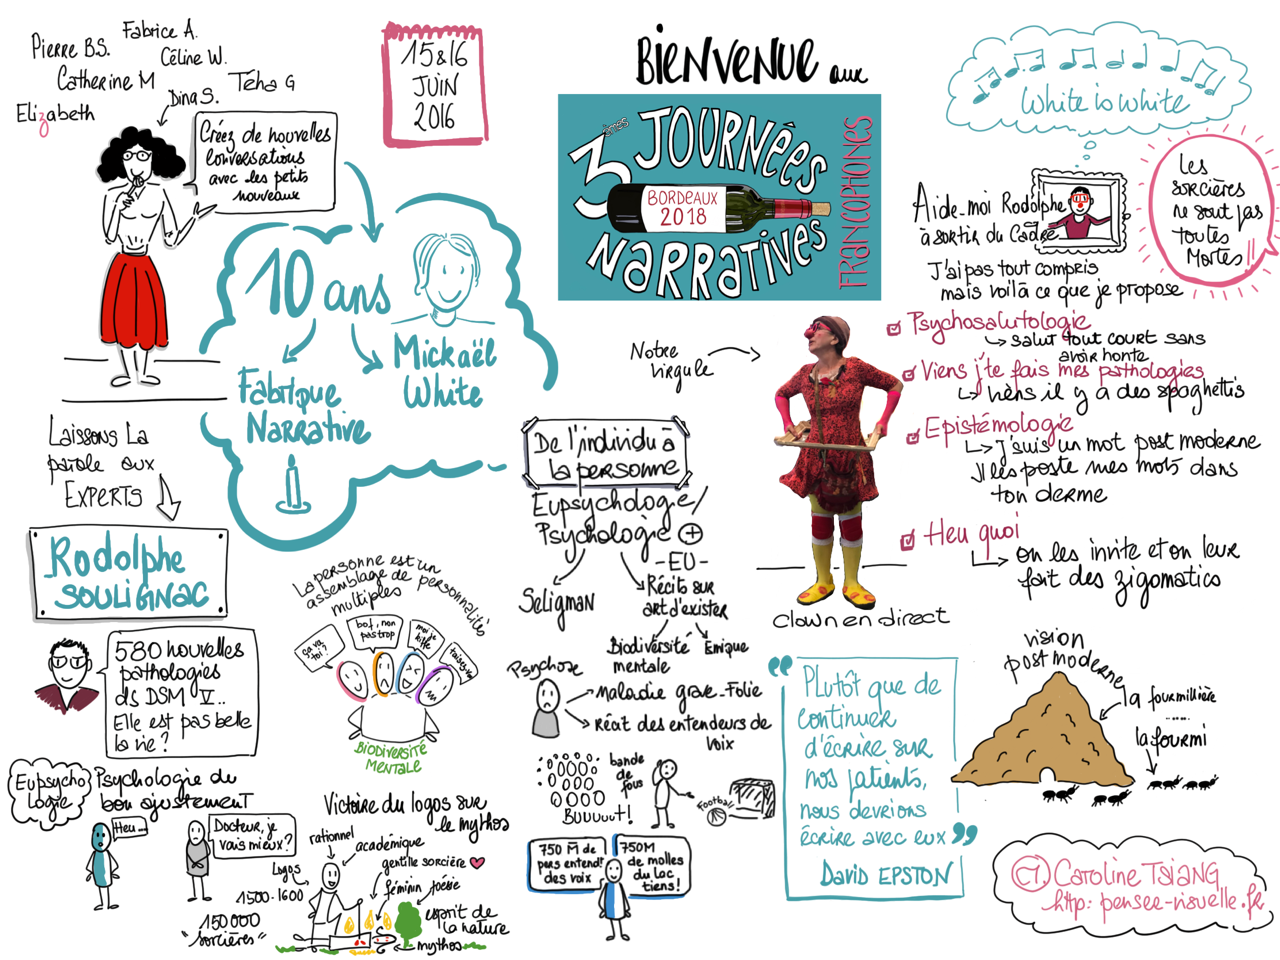 Fabrice A.
Pierre B.S.
Céline W.
Catherine M
Téha G
Dina S.
Elizabeth
Créez de nouvelles
conversations
avec les petits
nouveaux
15&16
JUIN
2016
BIENVENUE aux
3èmes JOURNÉES
NARRATIVES
FRANCOPHONES
BORDEAUX
2018
White is white
Les
sorcières
ne sont pas
toutes
Mortes !!
Aide-moi Rodolphe
à sortir du Cadre
J'ai pas tout compris
mais voilà ce que je propose
Psychosalutologie
salut tout court sans
avoir honte
Viens j'te fais mes pathologies
hèns il y a des spaghettis
Epistémologie
J'suis un mot post moderne
J'les poste mes mots dans
ton derme
Heu quoi
on les invite et on leur
fait des zigomatics
Notre
virgule
clown en direct
10 ans
Fabrique
NARRATIVE
Mickaël
White
Laissons La
parole aux
EXPERTS
Rodolphe
SOULIGNAC
580 nouvelles
pathologies
ds DSM V...
Elle est pas belle
la vie ?
La personne est un
assemblage de personnalités
multiples
ça va
toi ?
bof, non
pas trop
moi je
kiffe
taisez-vous
BIODIVERSITÉ
MENTALE
De l'individu à
la personne
Eupsychologie/
Psychologie +
Seligman
-EU-
Récits sur
art d'exister
Biodiversité
mentale
Emique
Psychose
maladie grave-Folie
Récit des entendeurs de
voix
bande
de
fous
BUUUUUT!
Football
750 M de
pers entend!
des voix
750M
de molles
du Loc
tiens!
Plutôt que de
continuer
d'écrire sur
nos patients,
nous devrions
écrire avec eux
David EPSTON
vision
post moderne
la fourmilière
.....
la fourmi
Eupsycho
logie
Psychologie du
bon ajustement
Heu...
Docteur, je
vais mieux?
Victoire du logos sur
le mythos
rationnel
académique
gentille sorcière
Logos
féminin
poésie
1500-1600
150 000
"sorcières"
esprit de
la nature
mythos
CT. Caroline TSIANG
http: pensee-visuelle.fr